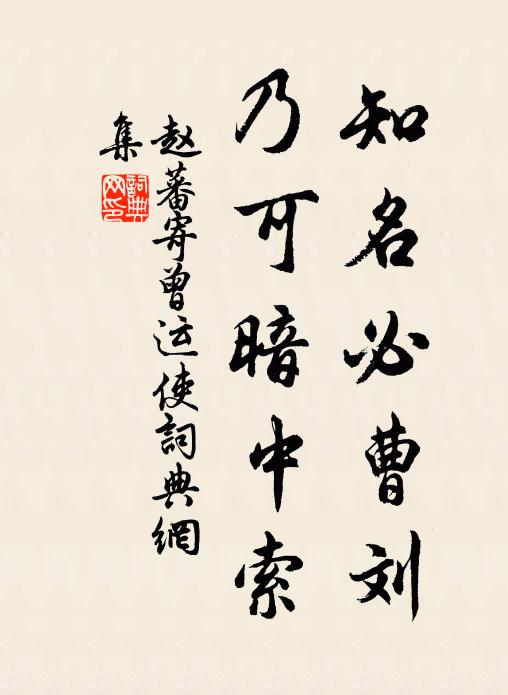 知名必曹刘
乃可暗中索
赵蕃寄曾运使詞典網
集
詞典
网印